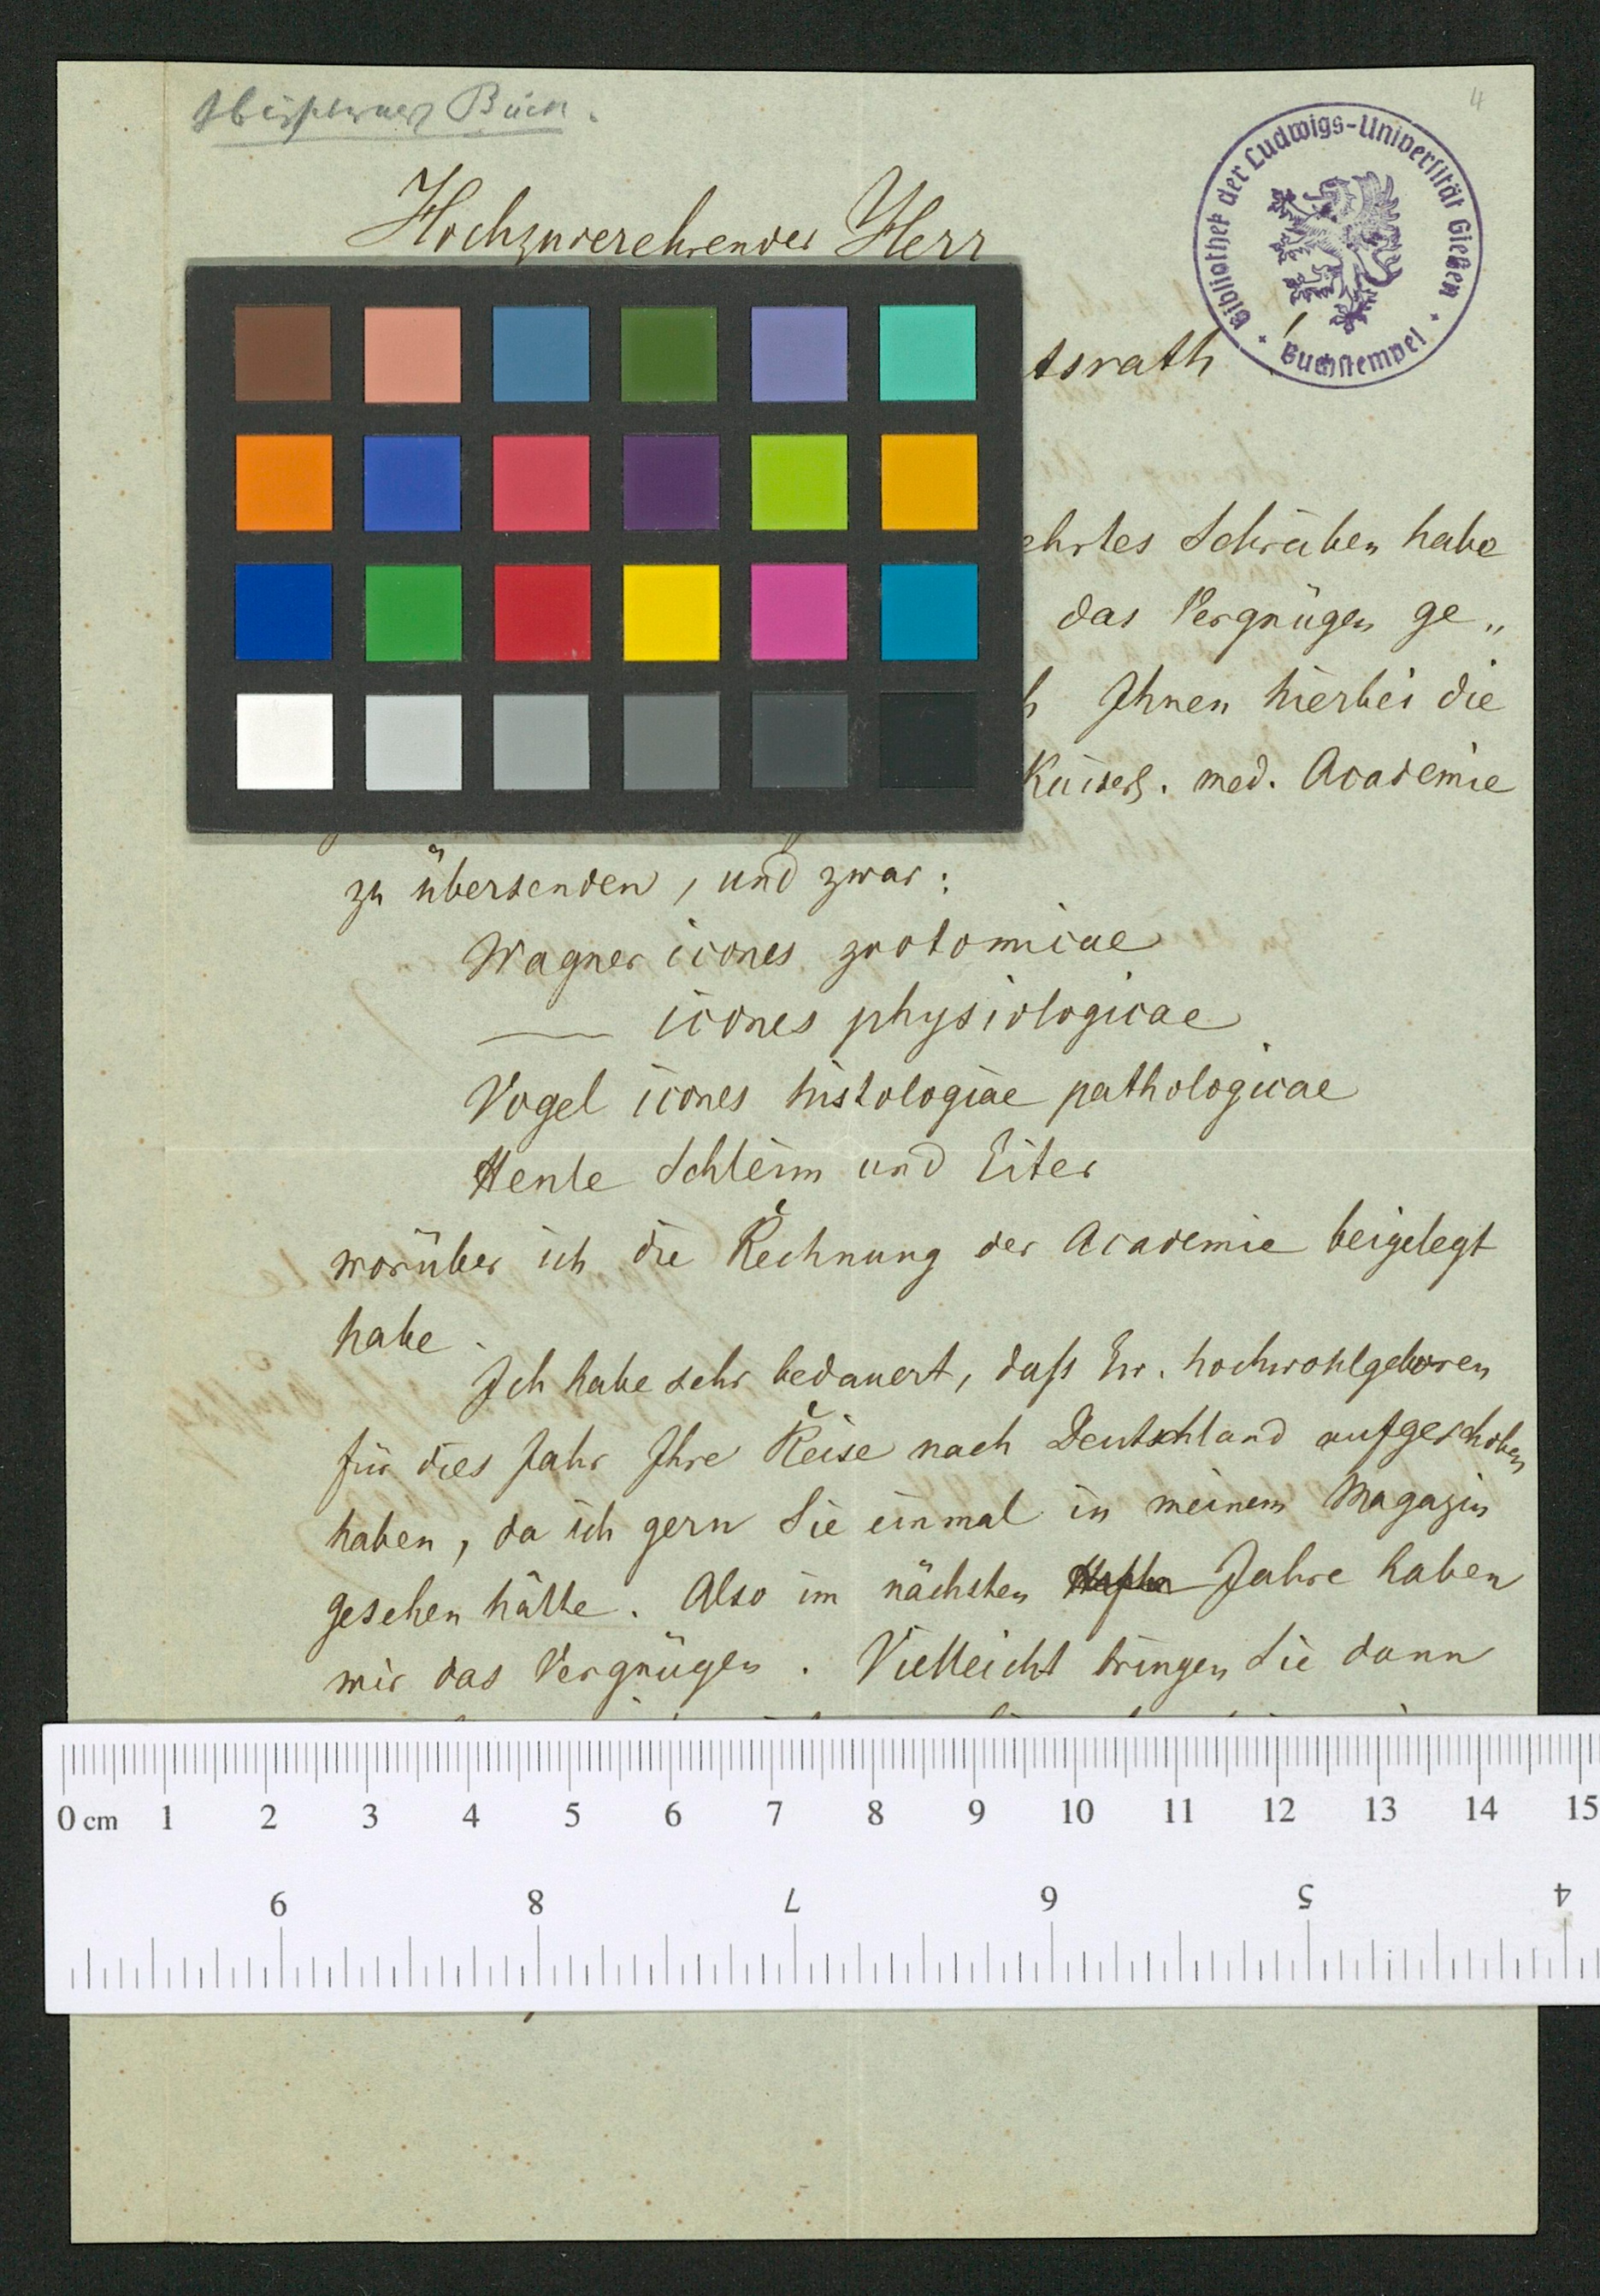 4
Bibliothek der Ludwigs-Universität Gießen
Buchstempel
Hochzuverehrender Herr
tsrath !
ehrtes Schreiben habe
das Vergnügen ge„
h Ihnen hierbei die
Kaiserl. med. Academie
zu übersenden, und zwar:
Wagner icones zootomicae
—— icones physiologicae
Vogel icones histologiae pathologicae
Henle Schleim und Eiter
worüber ich die Rechnung der Academie beigelegt
habe.
Ich habe sehr bedauert, daß Ew. hochwohlgeboren
für dies Jahr Ihre Reise nach Deutschland aufgeschoben
haben, da ich gern Sie einmal in meinem Magazin
gesehen hätte. Also im nächsten Jahre haben
wir das Vergnügen. Vielleicht bringen Sie dann
0 cm 1 2 3 4 5 6 7 8 9 10 11 12 13 14 15
9 8 7 6 5 4